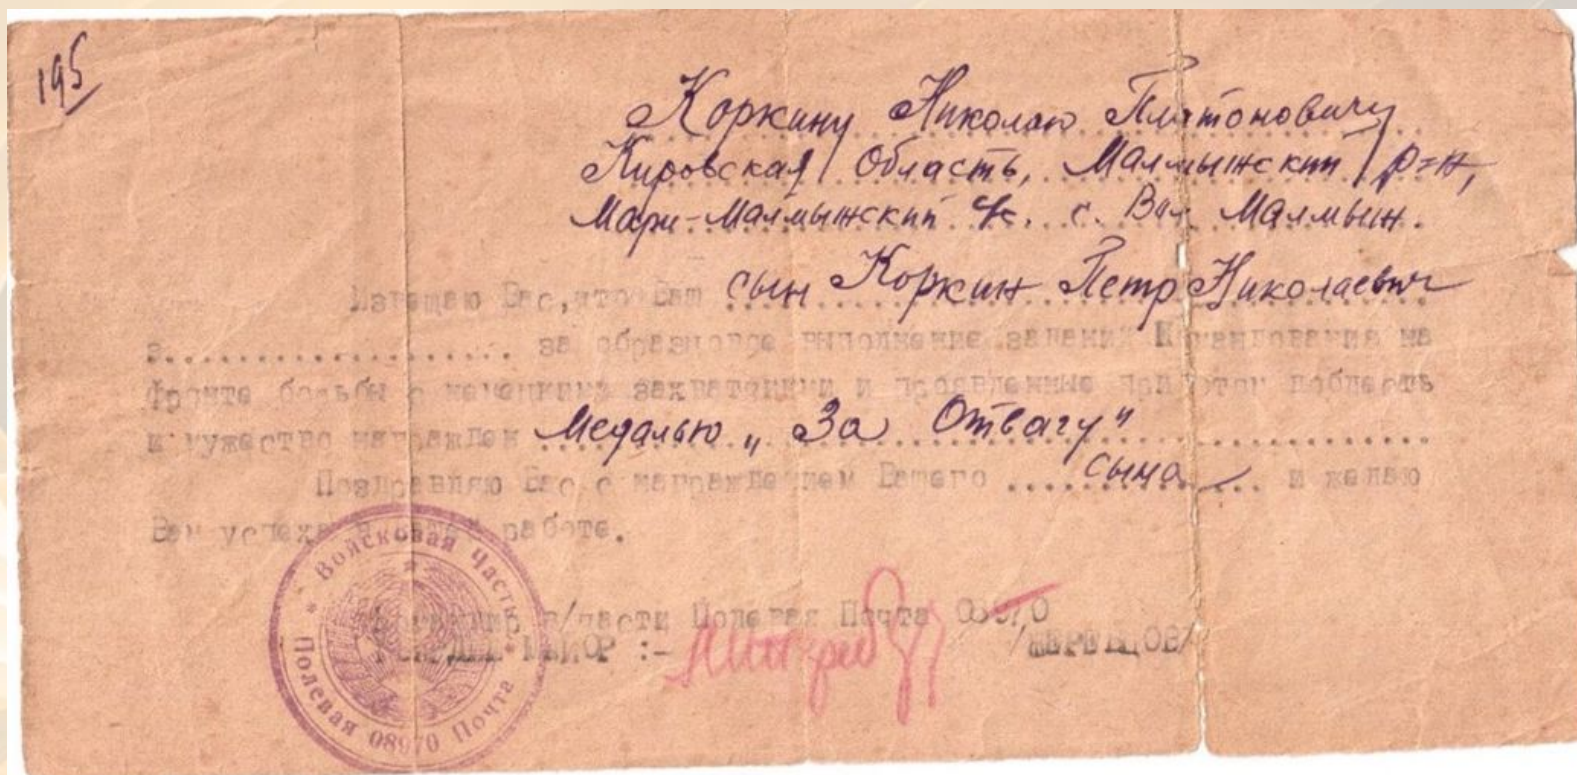 195
Коркину Николаю Платоновичу
Кировская Область, Малмыжский р-н,
Мари-Малмыжский с. Малмыж.
Извещаю Вас, что Ваш сын Коркин Петр Николаевич
за образцовое выполнение заданий Командования на
фронте борьбы с немецкими захватчиками и проявленные при этом доблесть
и мужество награжден Медалью „За Отвагу"
Поздравляю Вас с награждением Вашего сына и желаю
Вам успеха в Вашей работе.
Командир в/части Полевая Почта 08970
ГВАРДИИ МАЙОР :- /ЖЕРЕБЦОВ/
Войсковая Часть
Полевая 08970 Почта